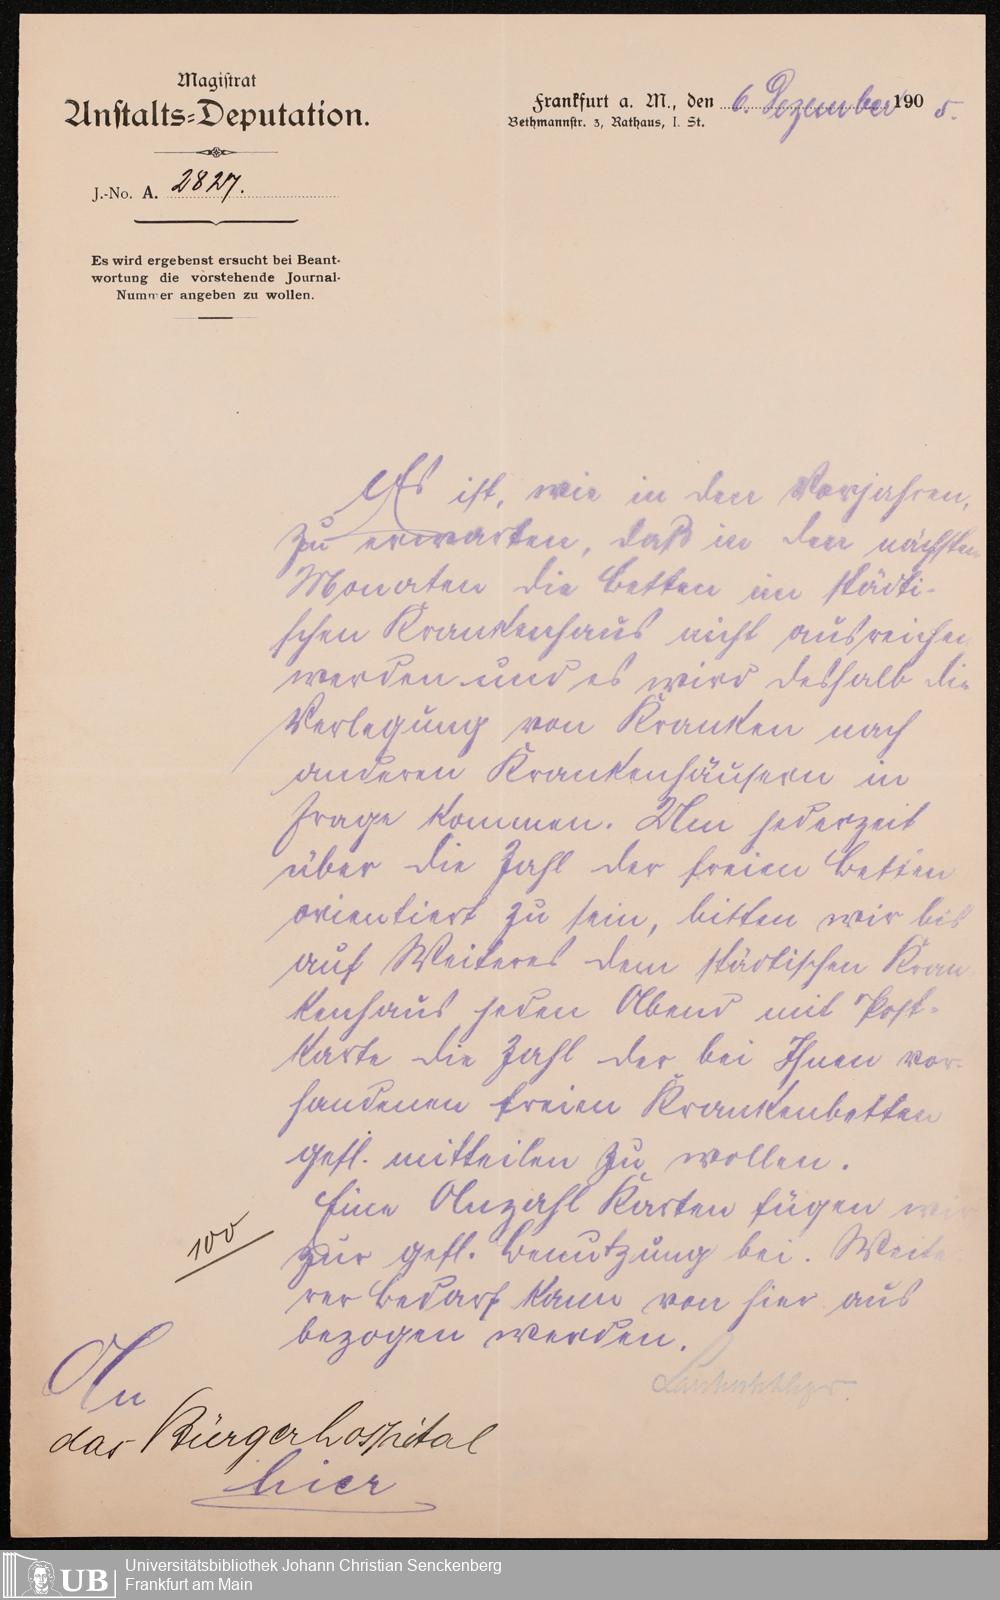 Magistrat
Anstalts-Deputation.
J.-No. A. 2827.
Es wird ergebenst ersucht bei Beant-
wortung die vorstehende Journal-
Nummer angeben zu wollen.
Frankfurt a. M., den 6. Dezember 1905.
Bethmannstr. 3, Rathaus, I. St.
Es ist, wie in den Vorjahren,
zu erwarten, daß in den nächsten
Monaten die Betten im städti-
schen Krankenhaus nicht ausreichen
werden und es wird deshalb die
Verlegung von Kranken nach
anderen Krankenhäusern in
Frage kommen. Um jederzeit
über die Zahl der freien Betten
orientiert zu sein, bitten wir bis
auf Weiteres dem städtischen Kran
kenhaus jeden Abend mit Post-
karte die Zahl der bei Ihnen vor-
handenen freien Krankenbetten
gefl. mitteilen zu wollen.
Eine Anzahl Karten fügen wir
zur gefl. Benutzung bei. Weite
rer Bedarf kann von hier aus
bezogen werden.
100
An
das Bürgerhospital
hier
UB
Universitätsbibliothek Johann Christian Senckenberg
Frankfurt am Main